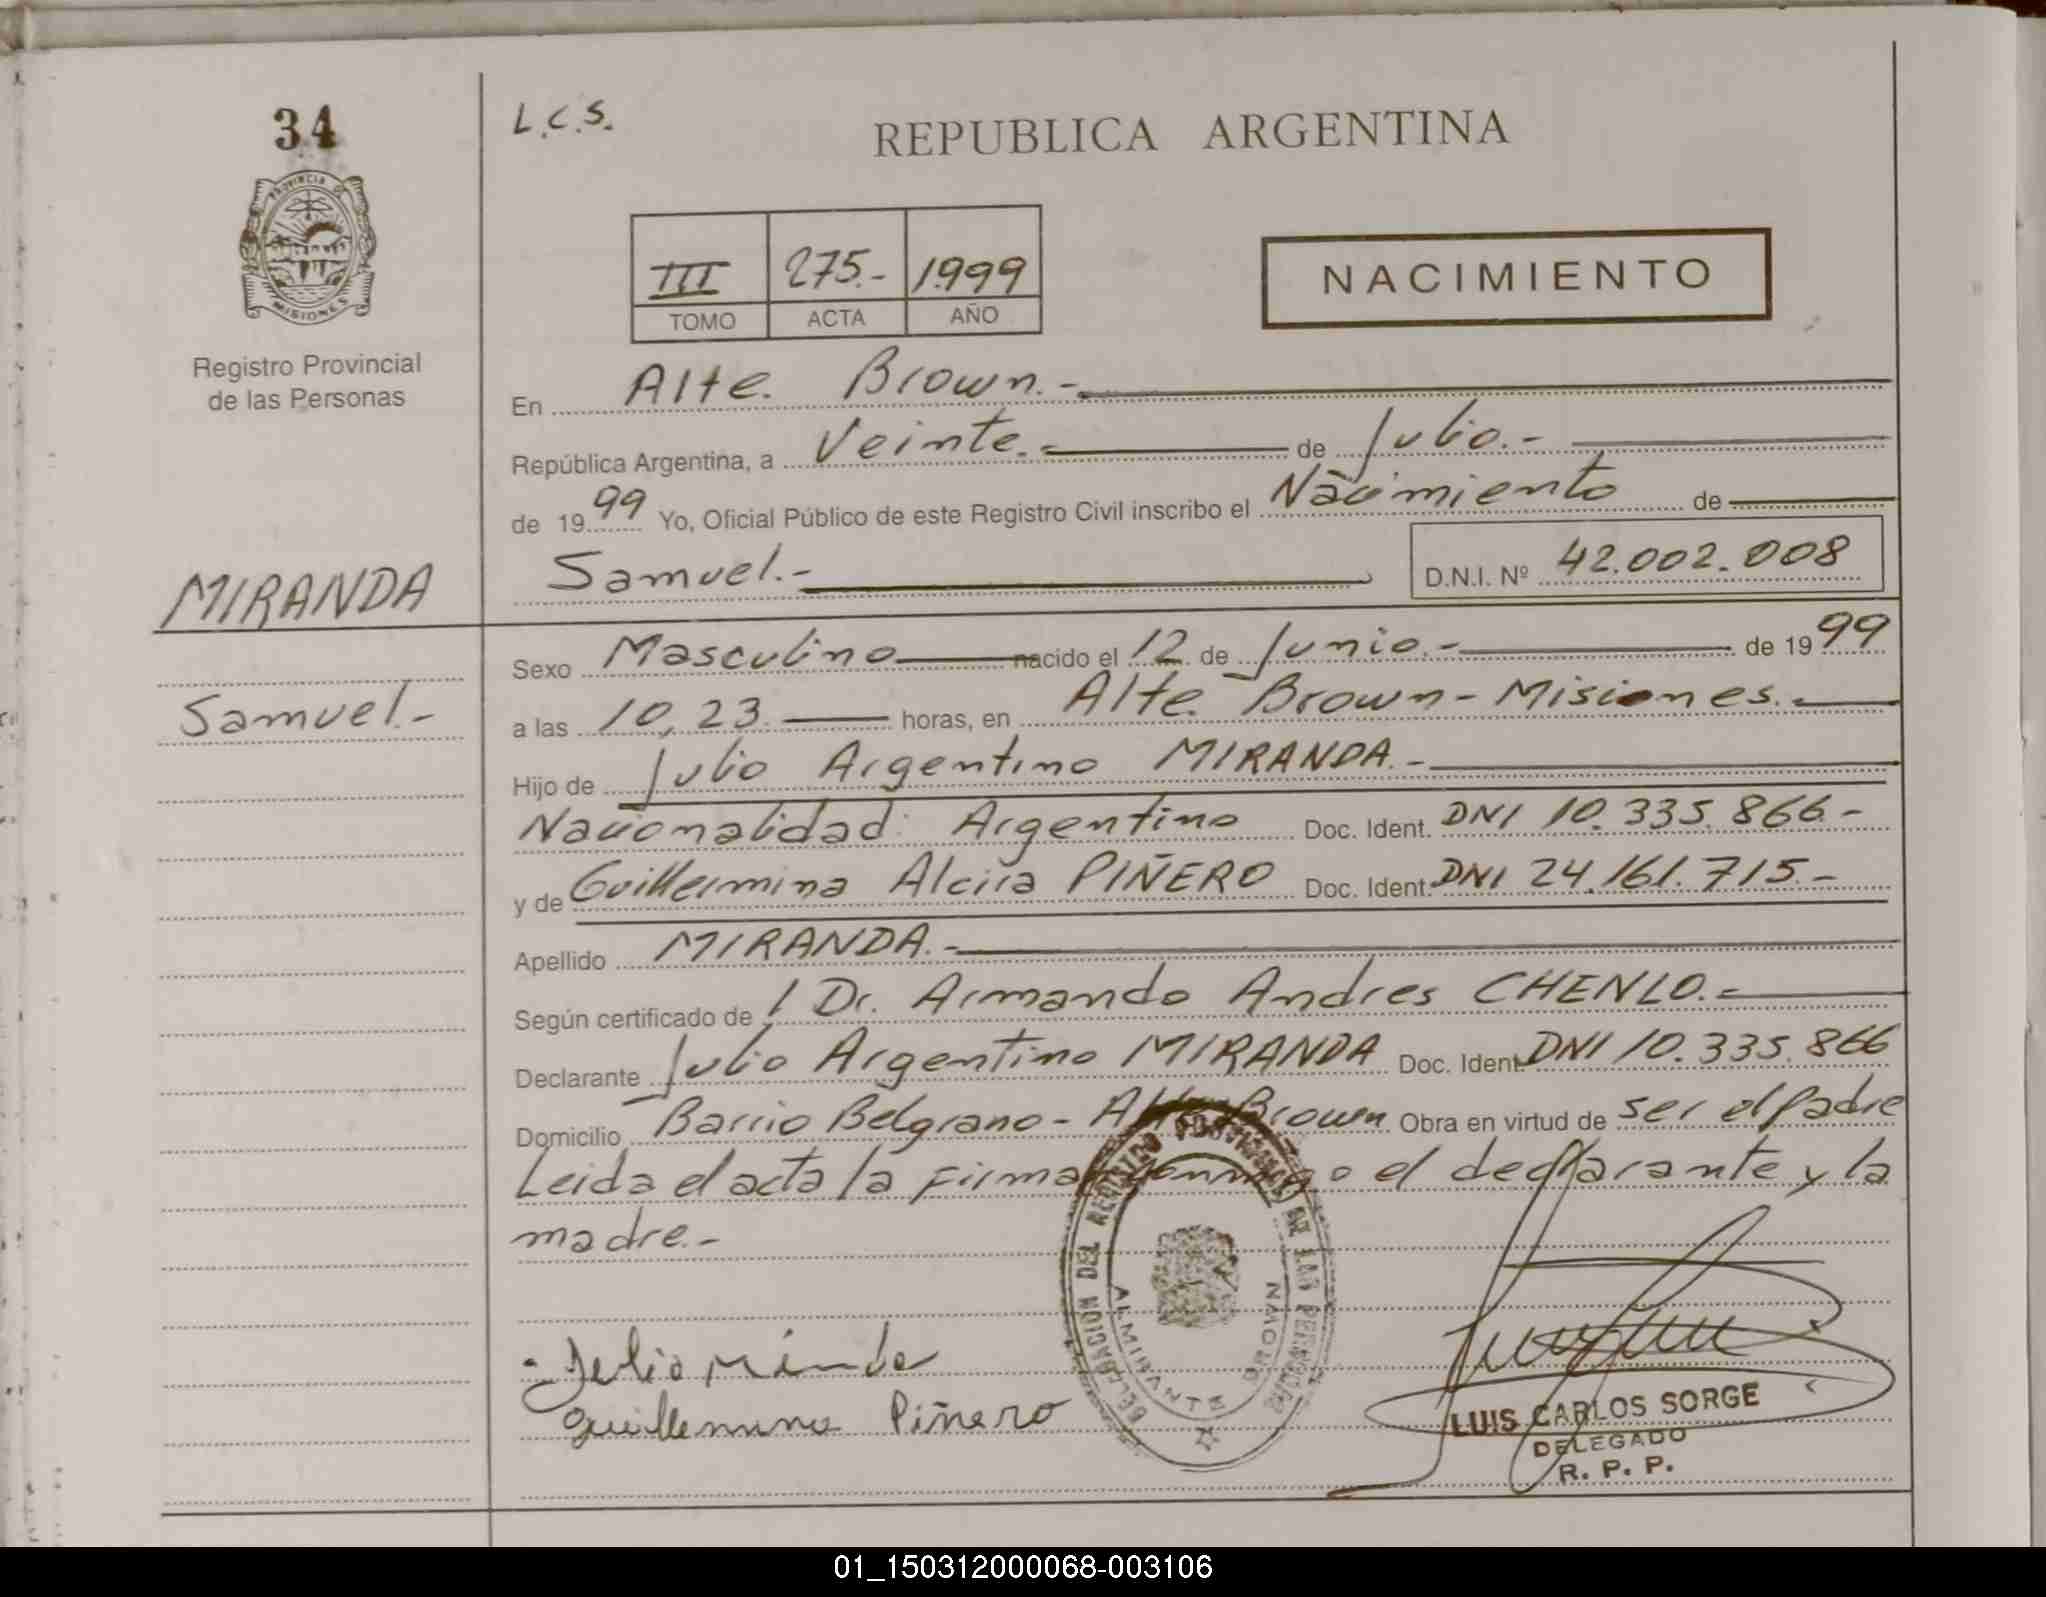 34
L.C.S.
REPUBLICA ARGENTINA
PROVINCIA DE
MISIONES
Registro Provincial
de las Personas
III 275.- 1999
TOMO ACTA AÑO
NACIMIENTO
En Alte. Brown.-
República Argentina, a Veinte.- de Julio.-
de 1999 Yo, Oficial Público de este Registro Civil inscribo el Nacimiento de
MIRANDA
Samuel.- D.N.I. Nº 42.002.008
Sexo Masculino nacido el 12 de Junio.- de 1999
Samuel.-
a las 10,23 horas, en Alte. Brown - Misiones.-
Hijo de Julio Argentino MIRANDA.-
Nacionalidad: Argentino Doc. Ident. DNI 10.335.866.-
y de Guillermina Alcira PIÑERO Doc. Ident. DNI 24.161.715.-
Apellido MIRANDA.-
Según certificado de / Dr. Armando Andres CHENLO.-
Declarante Julio Argentino MIRANDA Doc. Ident. DNI 10.335.866
Domicilio Barrio Belgrano - Alte. Brown Obra en virtud de ser el padre
Leida el acta la firman conmigo el declarante y la
madre.-
DELEGACION DEL REGISTRO PROVINCIAL DE LAS PERSONAS
ALMIRANTE BROWN
Julio Miranda
Guillermina Piñero
LUIS CARLOS SORGE
DELEGADO
R. P. P.
01_150312000068-003106